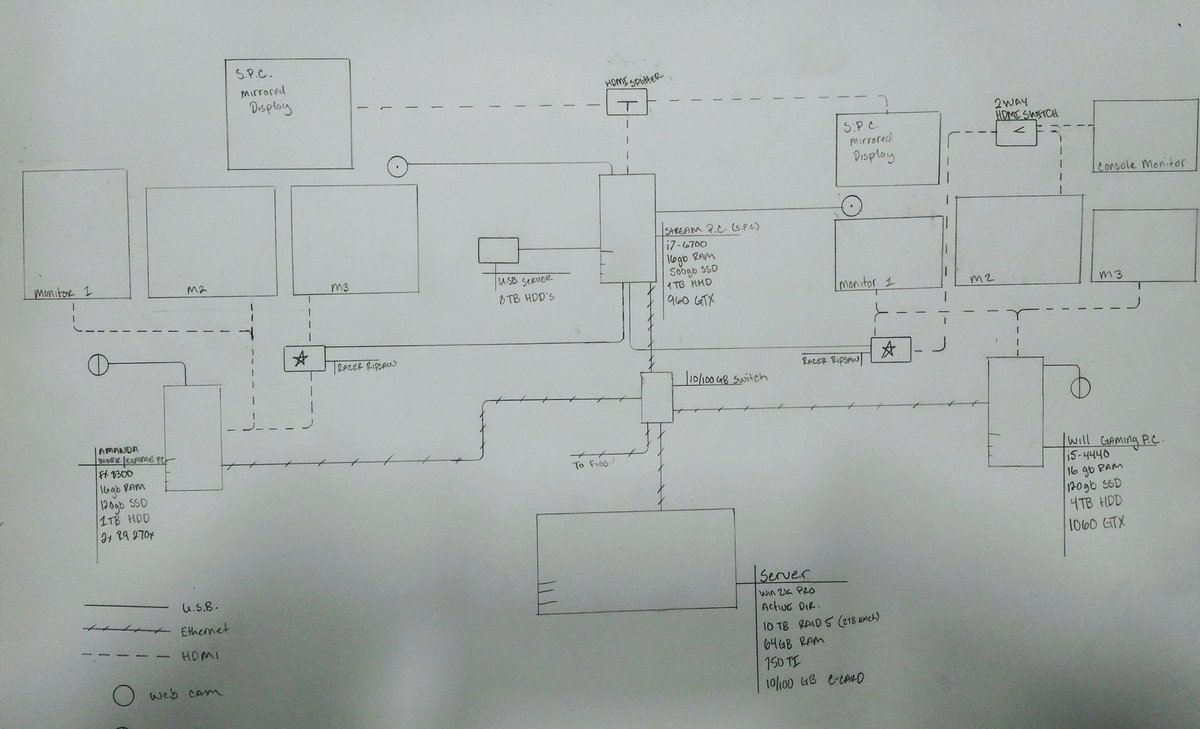 S.P.C.
mirrored
Display
HDMI SPLITTER
2 WAY
HDMI SWITCH
S.P.C.
mirrored
Display
Console Monitor
Monitor 1
M2
M3
U.S.B. SERVER
8TB HDD'S
STREAM P.C. (S.P.C)
i7-6700
16gb RAM
500gb SSD
1TB HHD
960 GTX
Monitor 1
M2
M3
RAZER RIPSAW
RAZER RIPSAW
10/100 GB Switch
To Fios
AMANDA
WORK/GAME PC
FX 8300
16gb RAM
120gb SSD
1TB HDD
2x R9 270x
Will Gaming P.C.
i5-4440
16 gb RAM
120gb SSD
4TB HDD
1060 GTX
Server
Win 2K PRO
ACTIVE DIR.
10 TB RAID 5 (2TB each)
64GB RAM
750 TI
10/100 GB E-CARD
U.S.B.
Ethernet
HDMI
Web CAM